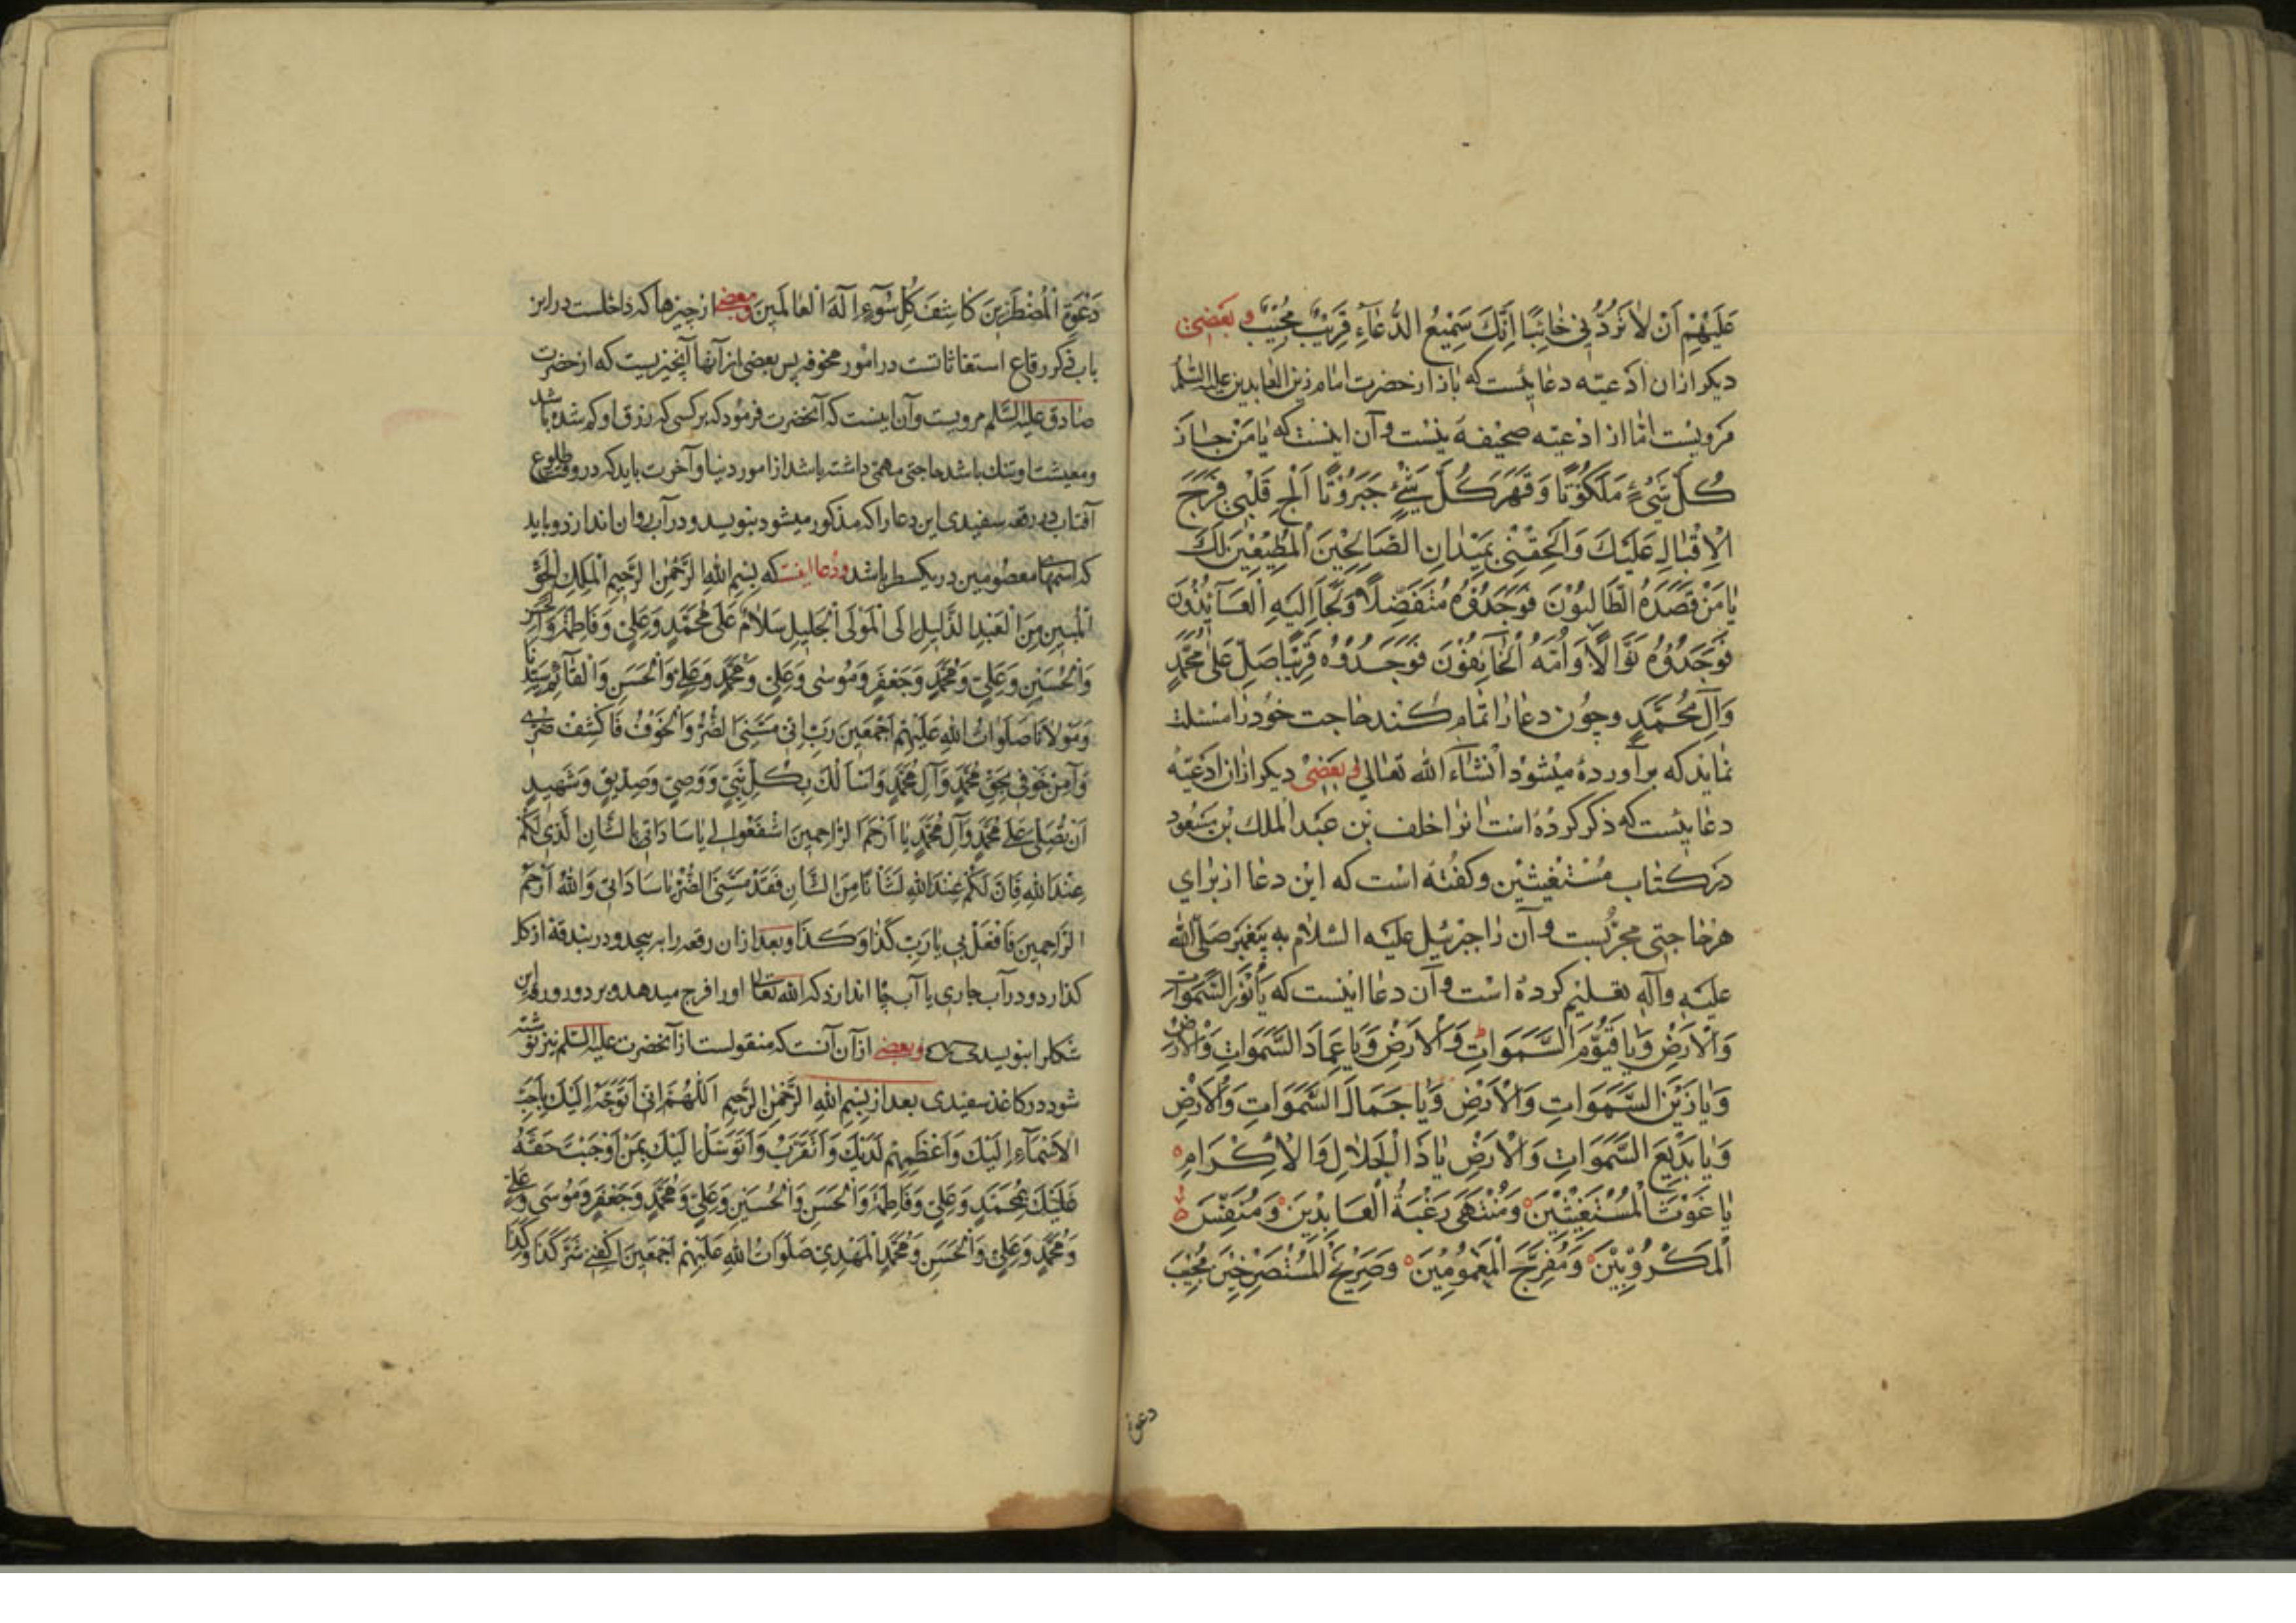 عَلَيْهِمْ أَنْ لَا تَرُدَّنِي خَائِبًا اِنَّكَ سَمِيْعُ الدُّعَآءِ قَرِيْبٌ مُجِيْبٌ و بَعْضَىْ
ديكر ازان ادعيّه دعائيست كه باز از حضرت امام زين العابدين عليه السّلم
مرويست امّا از ادعيّه صحيفه نيست و آن اينست كه يا مَنْ حازَ
كُلَّ شَيْءٍ مَلَكُوْتًا وَقَهَرَ كُلَّ شَيْءٍ جَبَرُوْتًا اَلْجِ قَلْبِي فَرَحَ
الْاِقْبالِ عَلَيْكَ وَاَلْحِقْنِي بِمَيْدانِ الصّالِحِيْنَ الْمُطِيْعِيْنَ لَكَ
يا مَنْ قَصَدَهُ الطّالِبُوْنَ فَوَجَدُوْهُ مُتَفَضِّلًا وَلَجَأَ اِلَيْهِ الْعَآئِذُوْنَ
فَوَجَدُوْهُ نَوّالًا وَاَمَّهُ الْخآئِفُوْنَ فَوَجَدُوْهُ قَرِيْبًا صَلِّ عَلى مُحَمَّدٍ
وَآلِ مُحَمَّدٍ و چون دعا را تمام كند حاجت خود را مسئلت
نمايد كه برآورده ميشود انشآء الله تعالى و بَعْضىْ ديكر ازان ادعيّه
دعائيست كه ذكر كرده است انرا خلف بن عبد الملك بن مسعود
در كتاب مستغيثين و كفته است كه اين دعا از براي
هر حاجتى مجرّبست و آن را جبرئيل عليه السّلام به پيغمبر صلّى الله
عليه وآله تعليم كرده است و آن دعا اينست كه يا نُوْرَ السَّمَواتِ
وَالْاَرْضِ وَيا قَيُّوْمَ السَّمَواتِ وَالْاَرْضِ وَيا عِمادَ السَّمَواتِ وَالْاَرْضِ
وَيا زَيْنَ السَّمَواتِ وَالْاَرْضِ وَيا جَمالَ السَّمَواتِ وَالْاَرْضِ
وَيا بَدِيْعَ السَّمَواتِ وَالْاَرْضِ يا ذَا الْجَلالِ وَالْاِكْرامِ
يا غَوْثَ الْمُسْتَغِيْثِيْنَ وَمُنْتَهى رَغْبَةُ الْعابِدِيْنَ وَمُنَفِّسَ
الْمَكْرُوْبِيْنَ وَمُفَرِّجَ الْمَغْمُوْمِيْنَ وَصَرِيْخَ الْمُسْتَصْرِخِيْنَ مُجِيْبَ
دعوة
دَعْوَةِ الْمُضْطَرِّيْنَ كاشِفَ كُلِّ سُوْٓءٍ اِلَهَ الْعالَمِيْنَ وبعضى از چيزها كه داخلست در اين
باب ذكر رقاع استغاثاتست در امور مخوفه پس بعضى از آنها آنچيزيست كه از حضرت
صادق عليه السّلم مرويست و آن اينست كه آنحضرت فرمود كه بر كسى كه رزق او كم شده باشد
و معيشت او تنك باشد حاجتى مهمّى داشته باشد از امور دنيا و آخرت بايد كه در وقت طلوع
آفتاب در رقعه سفيدى اين دعا را كه مذكور ميشود بنويسد و در آب روان اندازد و بايد
كه اسمهاى معصومين در يكسطر باشد و دعا اينست كه بِسْمِ اللهِ الرَّحْمنِ الرَّحِيْمِ الْمَلِكِ الْحَقِّ
الْمُبِيْنِ مِنَ الْعَبْدِ الذَّلِيْلِ اِلَى الْمَوْلَى الْجَلِيْلِ سَلامٌ عَلى مُحَمَّدٍ وَعَلِيٍّ وَفاطِمَةَ وَالْحَسَنِ
وَالْحُسَيْنِ وَعَلِيٍّ وَمُحَمَّدٍ وَجَعْفَرٍ وَمُوْسى وَعَلِيٍّ وَمُحَمَّدٍ وَعَلِيٍّ وَالْحَسَنِ وَالْقآئِمِ سَيِّدِنا
وَمَوْلانا صَلَواتُ اللهِ عَلَيْهِمْ اَجْمَعِيْنَ رَبِّ اِنّي مَسَّنِيَ الضُّرُّ وَالْخَوْفُ فَاكْشِفْ ضُرّي
وَآمِنْ خَوْفي بِحَقِّ مُحَمَّدٍ وَآلِ مُحَمَّدٍ وَاَسْأَلُكَ بِكُلِّ نَبِيٍّ وَوَصِيٍّ وَصِدِّيْقٍ وَشَهِيْدٍ
اَنْ تُصَلِّيَ عَلى مُحَمَّدٍ وَآلِ مُحَمَّدٍ يا اَرْحَمَ الرّاحِمِيْنَ اشْفَعُوا لي يا ساداتي بِالشَّأنِ الَّذي لَكُمْ
عِنْدَ اللهِ فَاِنَّ لَكُمْ عِنْدَ اللهِ لَشَأنًا مِنَ الشَّأنِ فَقَدْ مَسَّنِيَ الضُّرُّ يا ساداتي وَاللهُ اَرْحَمُ
الرّاحِمِيْنَ فَافْعَلْ بي يا رَبِّ كَذا وَكَذا و بعد ازان رقعه را بر پيچد و در بندقه از كل
كذارد و در آب جارى يا آب چاه اندازد كه الله تعالى او را فرج ميدهد و بر دور ورقه اين
شكل را بنويسد وبعضى از آن آنست كه منقولست از آنحضرت عليه السّلم نيز نوشته
شود در كاغذ سفيدى بعد از بِسْمِ اللهِ الرَّحْمنِ الرَّحِيْمِ اَللّهُمَّ اِنّي اَتَوَجَّهُ اِلَيْكَ بِاَحَبِّ
الْاَسْمآءِ اِلَيْكَ وَاَعْظَمِهِمْ لَدَيْكَ وَاَتَقَرَّبُ وَاَتَوَسَّلُ اِلَيْكَ بِمَنْ اَوْجَبْتَ حَقَّهُ
عَلَيْكَ بِمُحَمَّدٍ وَعَلِيٍّ وَفاطِمَةَ وَالْحَسَنِ وَالْحُسَيْنِ وَعَلِيٍّ وَمُحَمَّدٍ وَجَعْفَرٍ وَمُوْسى وَعَلِيٍّ
وَمُحَمَّدٍ وَعَلِيٍّ وَالْحَسَنِ وَمُحَمَّدٍ الْمَهْدِيِّ صَلَواتُ اللهِ عَلَيْهِمْ اَجْمَعِيْنَ اكْفِني شَرَّ كَذا وَكَذا